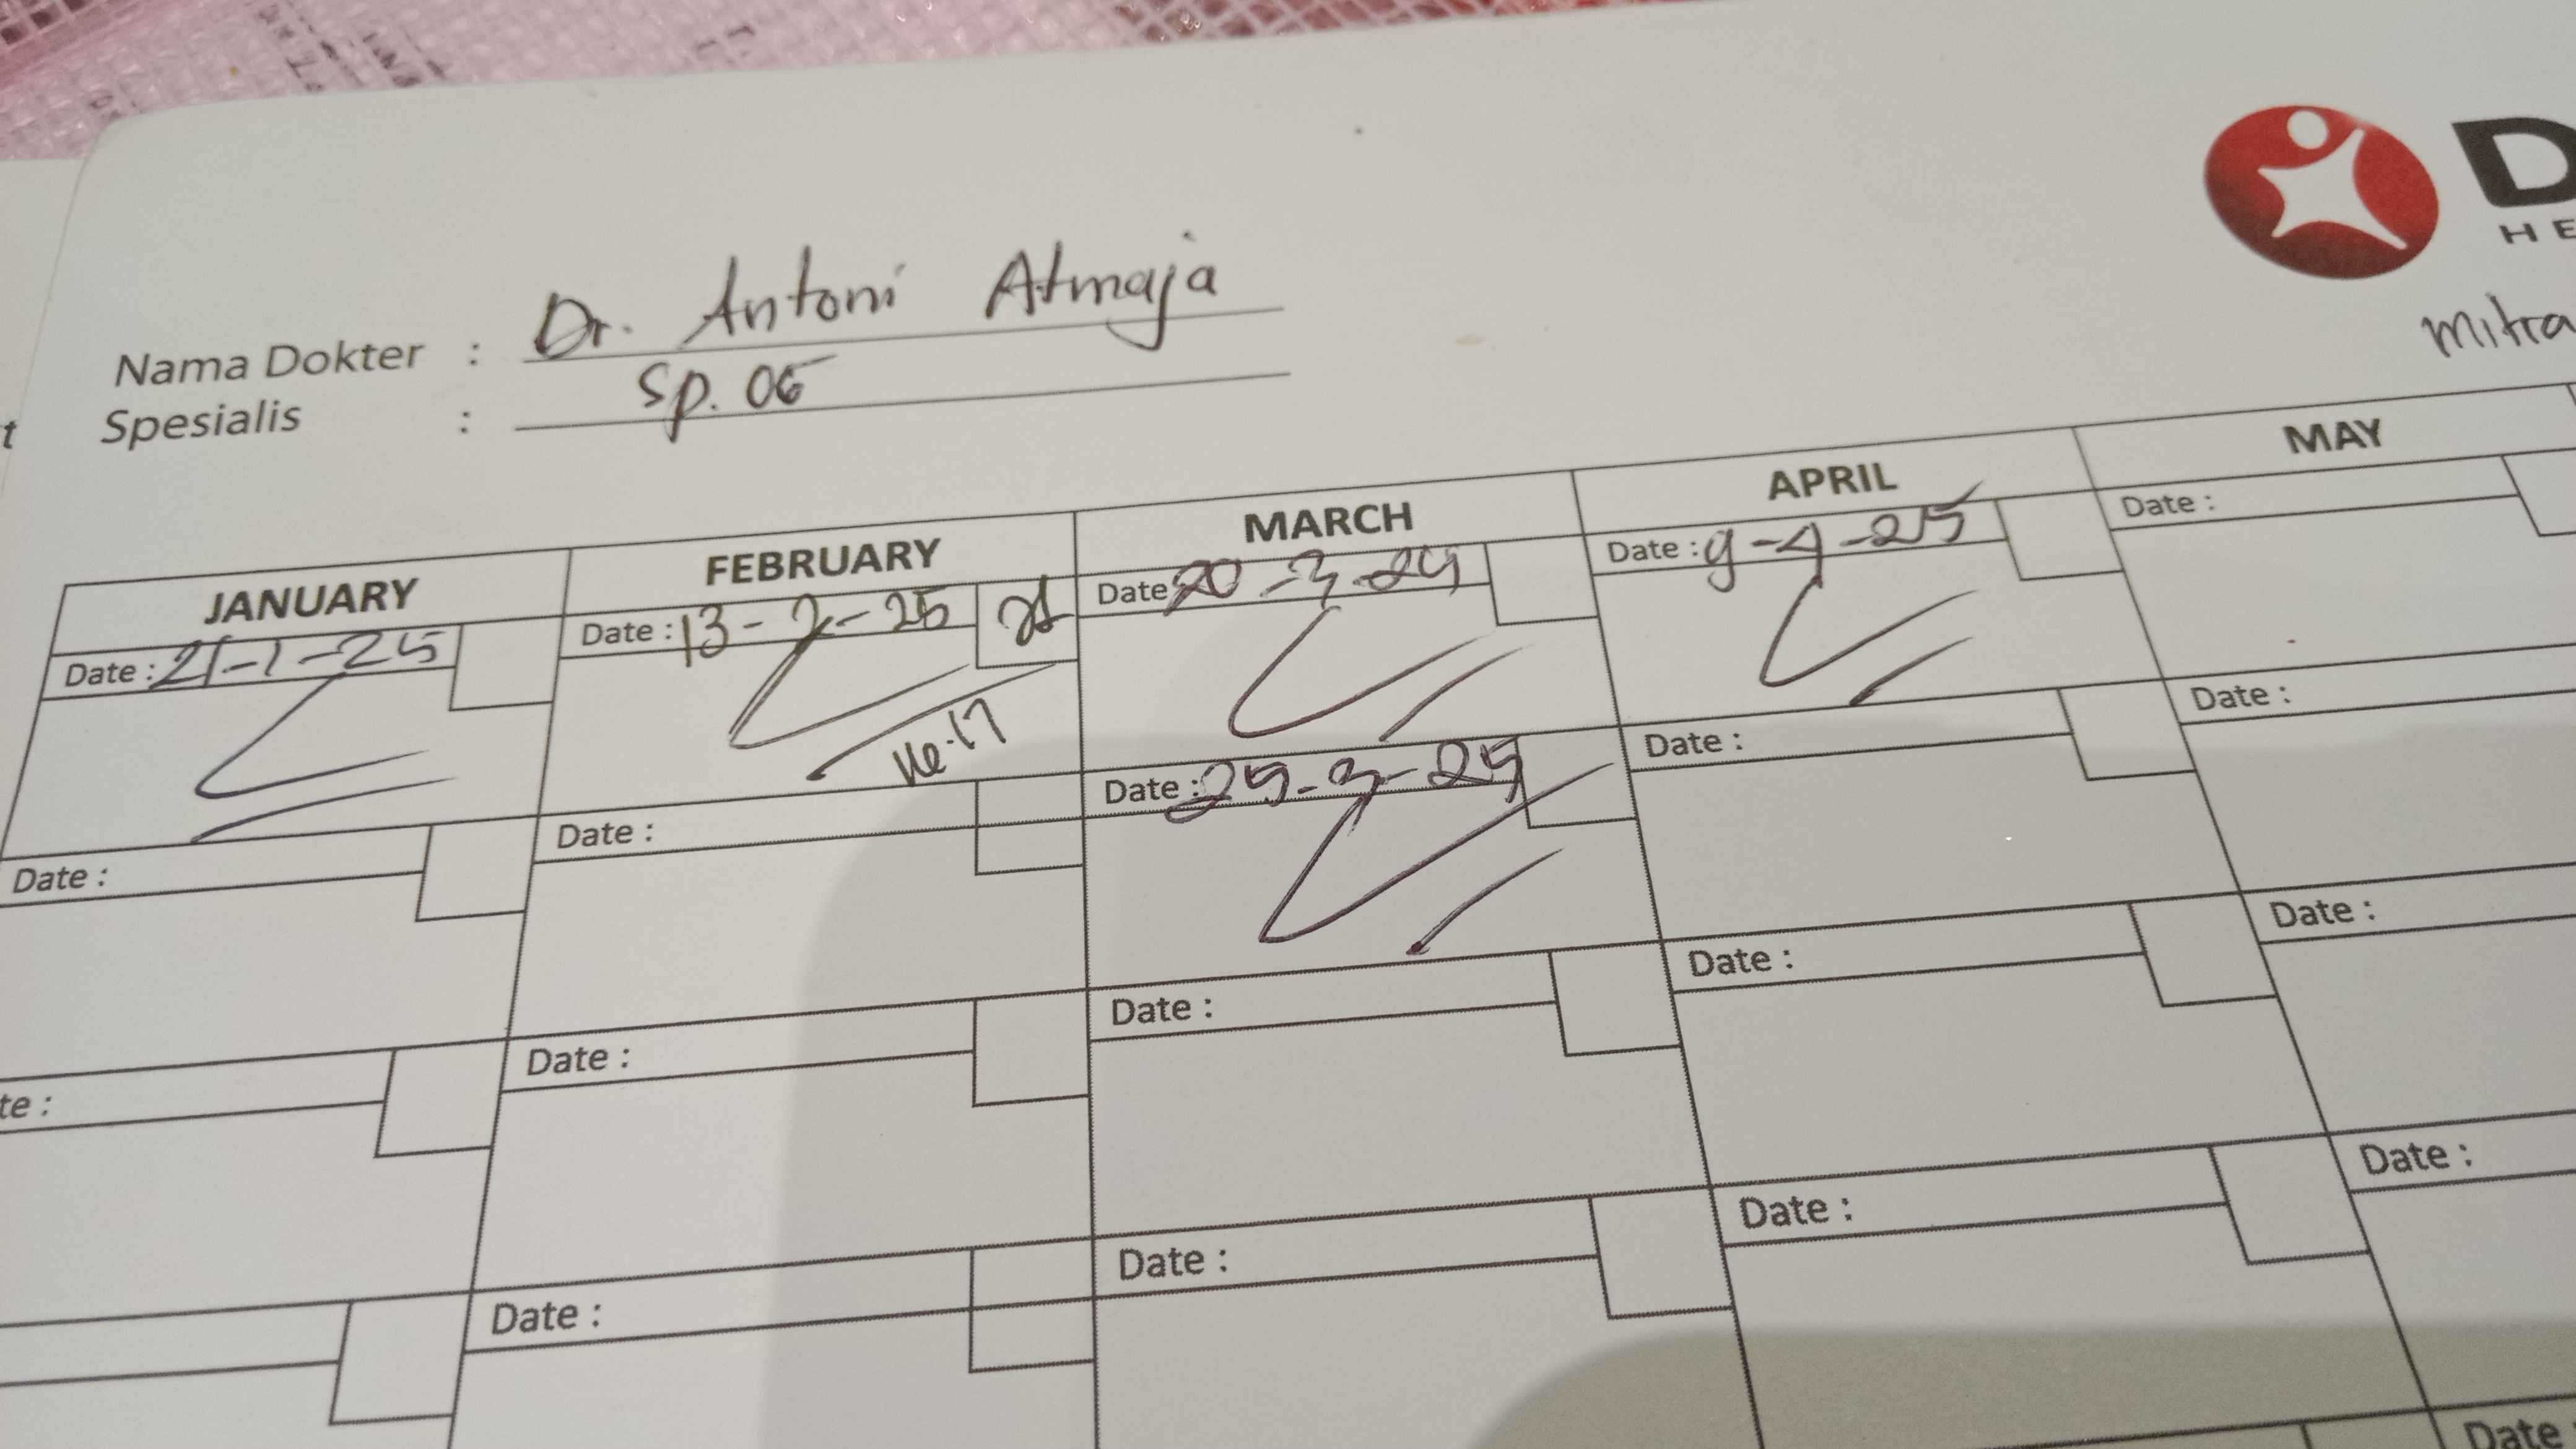 D
HE
Nama Dokter : Dr. Antoni Atmaja
Spesialis : Sp. OG
mitra
t
JANUARY FEBRUARY MARCH APRIL MAY
Date : 21-1-25 Date : 13-2-25 Date 20-3-25 Date : 9-4-25 Date :
Ke-17
Date : Date : Date : 25-3-25 Date : Date :
te : Date : Date : Date : Date :
Date : Date : Date : Date :
Date :